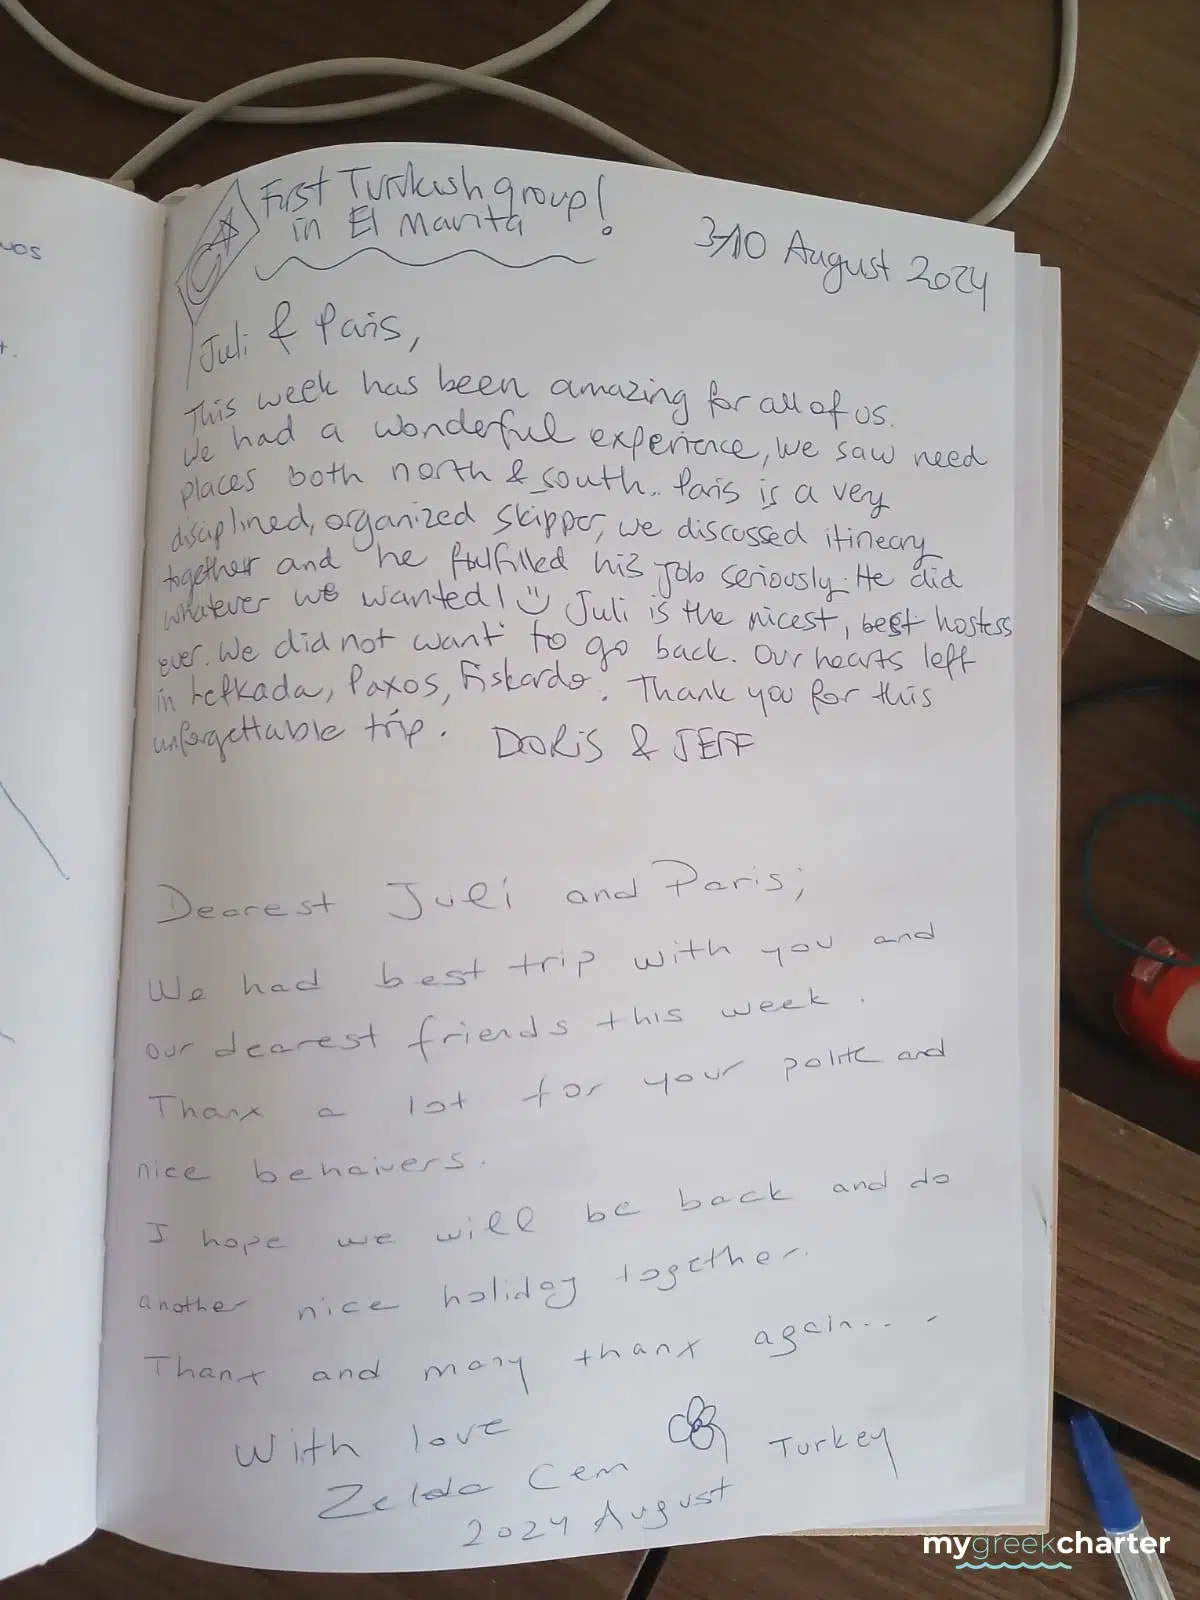 uos
t.
First Turkish group!
in El Marita
3-10 August 2024
Juli & Paris,
This week has been amazing for all of us.
We had a wonderful experience, we saw need
places both north & south.. Paris is a very
disciplined, organized skipper, we discussed itineary
together and he fulfilled his job seriously. He did
whatever we wanted! Juli is the nicest, best hostess
ever. We did not want to go back. Our hearts left
in Lefkada, Paxos, Fiskardo. Thank you for this
unforgettable trip. DORIS & JEFF
Dearest Juli and Paris;
We had best trip with you and
our dearest friends this week.
Thanx a lot for your polite and
nice behaivers.
I hope we will be back and do
another nice holiday together.
Thanx and many thanx again....
With love
Zelda Cem Turkey
2024 August
mygreekcharter